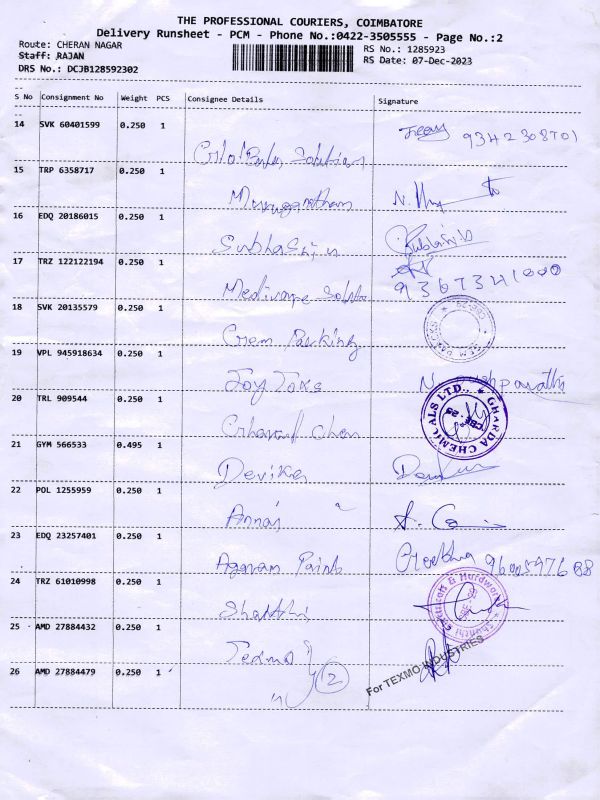 THE PROFESSIONAL COURIERS, COIMBATORE
Delivery Runsheet - PCM - Phone No.:0422-3505555 - Page No.:2
Route: CHERAN NAGAR
RS No.: 1285923
Staff: RAJAN
RS Date: 07-Dec-2023
DRS No.: DCJB128592302
S No Consignment No Weight PCS Consignee Details Signature
14 SVK 60401599 0.250 1
9342308701
Solutions
15 TRP 6358717 0.250 1
Muruganantham N.
16 EDQ 20186015 0.250 1
Subhashin
17 TRZ 122122194 0.250 1
9367341000
18 SVK 20135579 0.250 1
Gem
19 VPL 945918634 0.250 1
Joy
20 TRL 909544 0.250 1
GHARDA CHEMICALS LTD.,
CBE-29
21 GYM 566533 0.495 1
Devika
22 POL 1255959 0.250 1
Annai
23 EDQ 23257401 0.250 1
Agaram Paints
24 TRZ 61010998 0.250 1
Shakthi
25 AMD 27884432 0.250 1
Texmo
26 AMD 27884479 0.250 1
2
For TEXMO INDUSTRIES